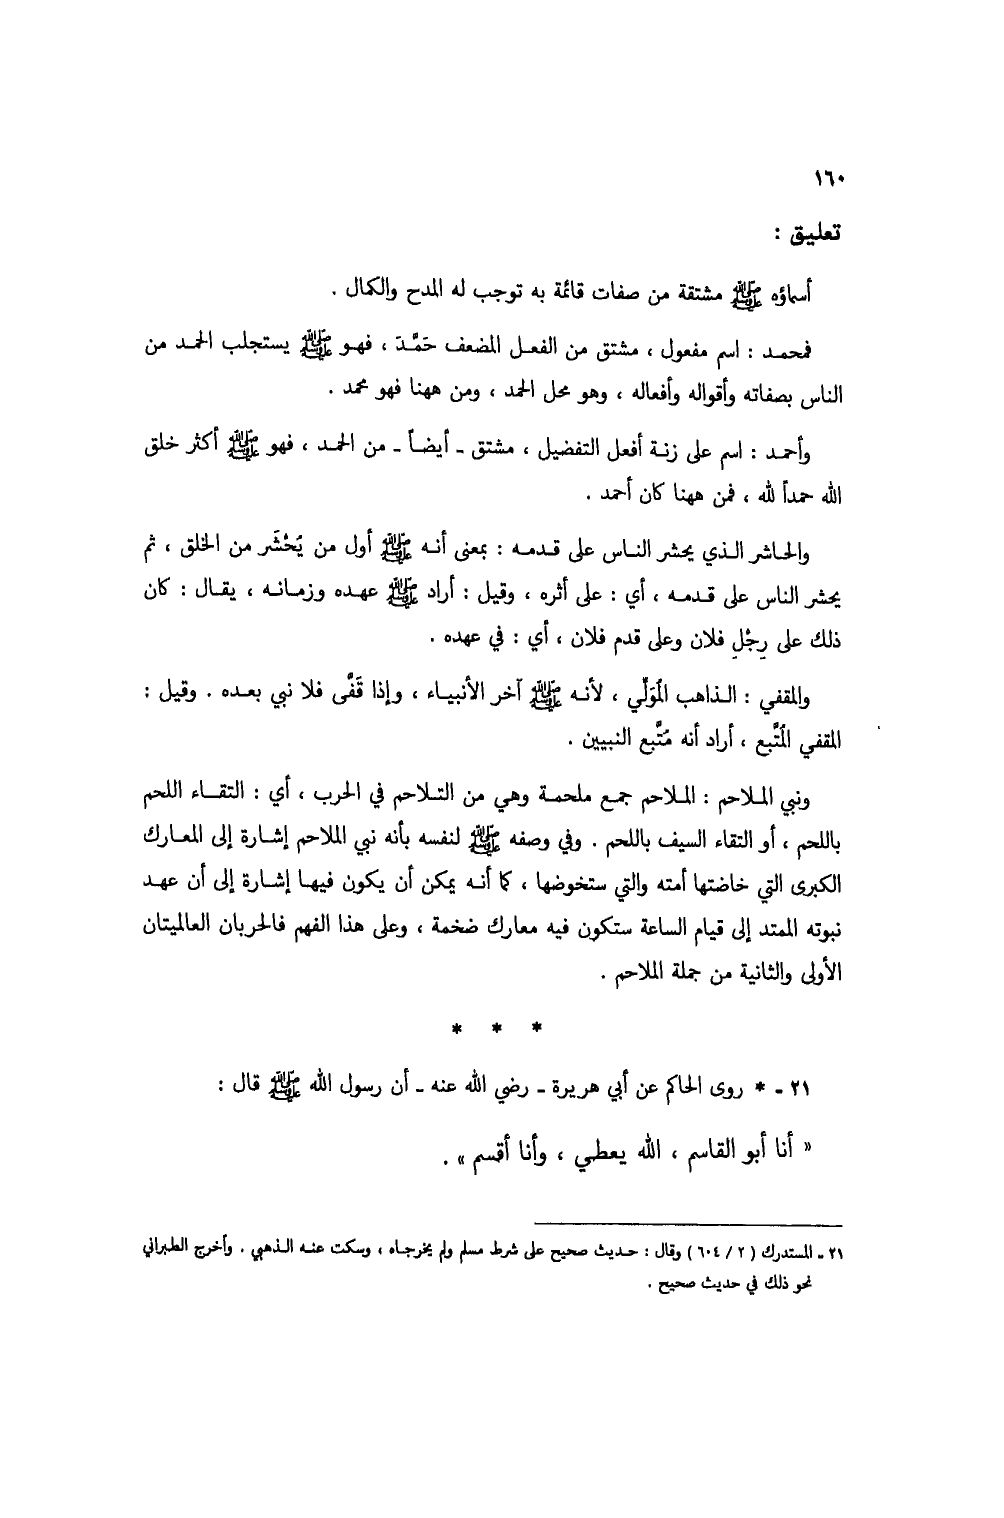 ١٦٠
تعليق :
أسماؤه ﷺ مشتقة من صفات قائمة به توجب له المدح والكمال .
فمحمد : اسم مفعول ، مشتق من الفعل المضعف حَمَّدَ ، فهو ﷺ يستجلب الحمد من
الناس بصفاته وأقواله وأفعاله ، وهو محل الحمد ، ومن ههنا فهو محمد .
وأحمد : اسم على زنة أفعل التفضيل ، مشتق ـ أيضاً ـ من الحمد ، فهو ﷺ أكثر خلق
الله حمداً لله ، فمن ههنا كان أحمد .
والحاشر الذي يحشر الناس على قدمه : بمعنى أنه ﷺ أول من يُحْشَر من الخلق ، ثم
يحشر الناس على قدمه ، أي : على أثره ، وقيل : أراد ﷺ عهده وزمانه ، يقال : كان
ذلك على رِجْلِ فلان وعلى قدم فلان ، أي : في عهده .
والمقفي : الذاهب المُوَلِّي ، لأنه ﷺ آخر الأنبياء ، وإذا قَفَّى فلا نبي بعده . وقيل :
المقفي المُتَّبع ، أراد أنه مُتَّبع النبيين .
ونبي الملاحم : الملاحم جمع ملحمة وهي من التلاحم في الحرب ، أي : التقاء اللحم
باللحم ، أو التقاء السيف باللحم . وفي وصفه ﷺ لنفسه بأنه نبي الملاحم إشارة إلى المعارك
الكبرى التي خاضتها أمته والتي ستخوضها ، كما أنه يمكن أن يكون فيها إشارة إلى أن عهد
نبوته الممتد إلى قيام الساعة ستكون فيه معارك ضخمة ، وعلى هذا الفهم فالحربان العالميتان
الأولى والثانية من جملة الملاحم .
* * *
٢١ ـ * روى الحاكم عن أبي هريرة ـ رضي الله عنه ـ أن رسول الله ﷺ قال :
« أنا أبو القاسم ، الله يعطي ، وأنا أقسم » .
٢١ ـ المستدرك ( ٢ / ٦٠٤ ) وقال : حديث صحيح على شرط مسلم ولم يخرجاه ، وسكت عنه الذهبي . وأخرج الطبراني
نحو ذلك في حديث صحيح .